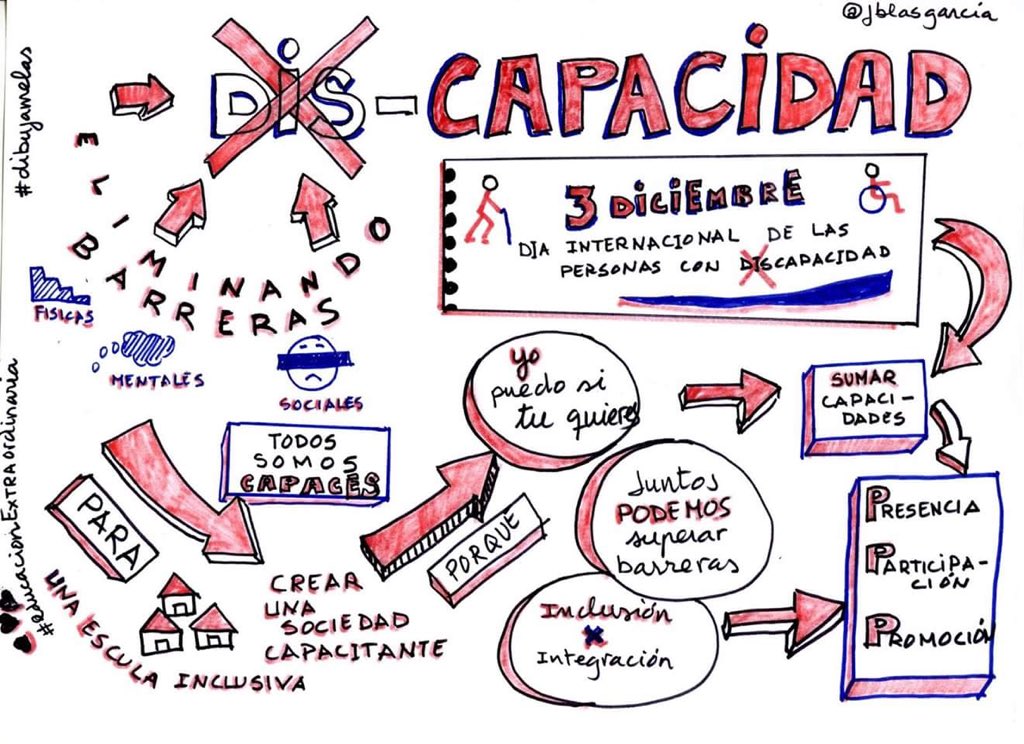 @jblasgarcia
#dibujamelas
DiS-CAPACiDAD
3 DICIEMBRE
DIA INTERNACIONAL DE LAS
PERSONAS CON DISCAPACIDAD
ELIMINANDO
BARRERAS
FISICAS
MENTALES
SOCIALES
TODOS
SOMOS
CAPACES
yo
puedo si
tu quieres
SUMAR
CAPACI-
DADES
Juntos
PODEMOS
superar
barreras
PRESENCIA
PARTICIPA-
CIÓN
PROMOCIÓN
PARA
PORQUE
UNA ESCULA INCLUSIVA
CREAR
UNA
SOCIEDAD
CAPACITANTE
Inclusión
x
Integración
#educacionExtraordinaria